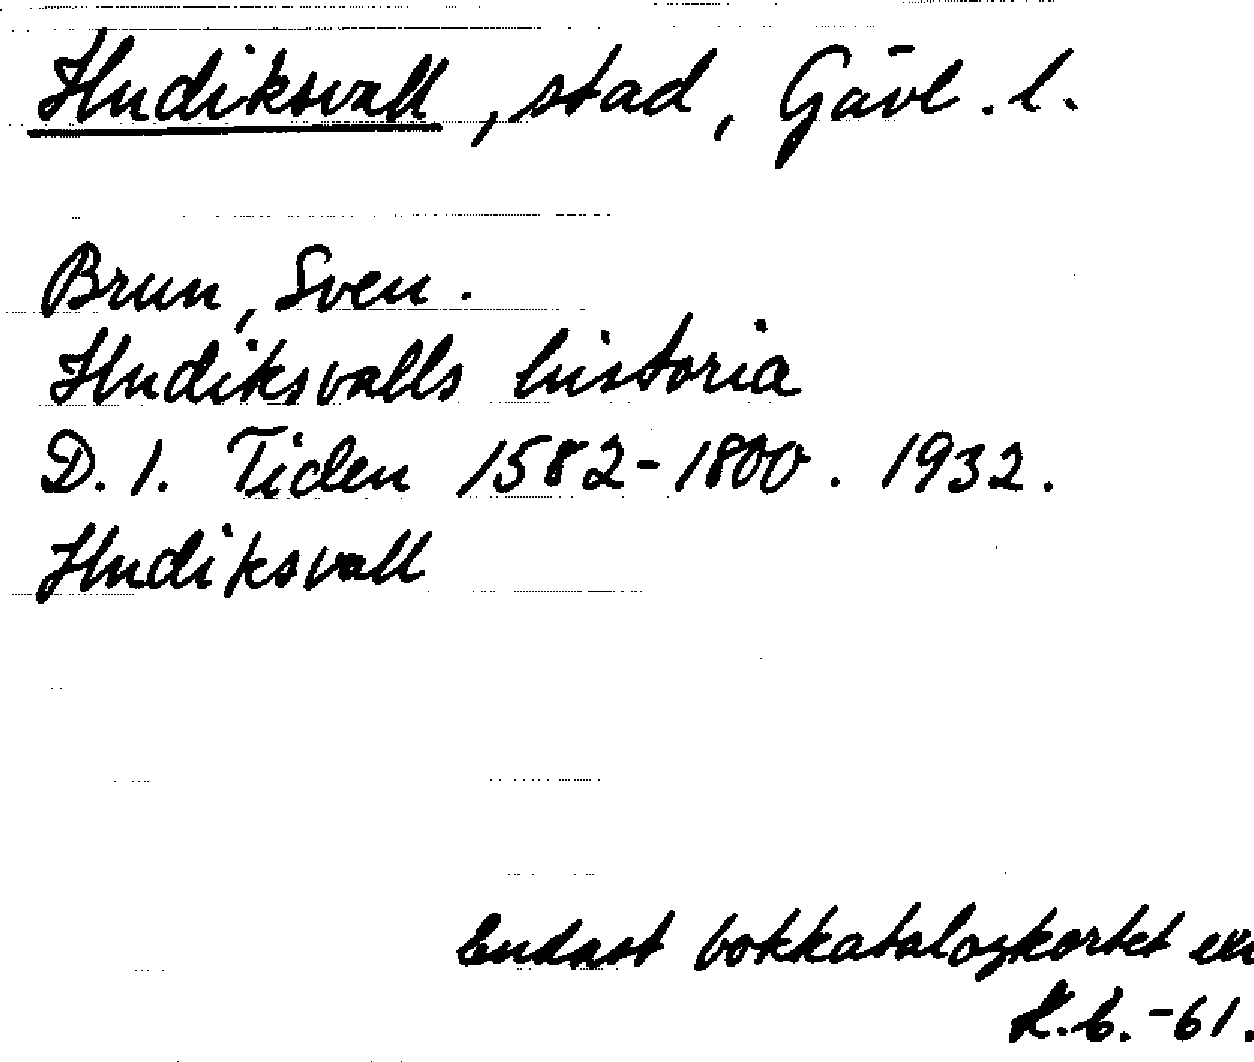 Hudiksvall, stad, Gävl. l.
Brun, Sven.
Hudiksvalls historia
D. 1. Tiden 1582-1800. 1932.
Hudiksvall
Endast bokkatalogkortet
K.B. -61.